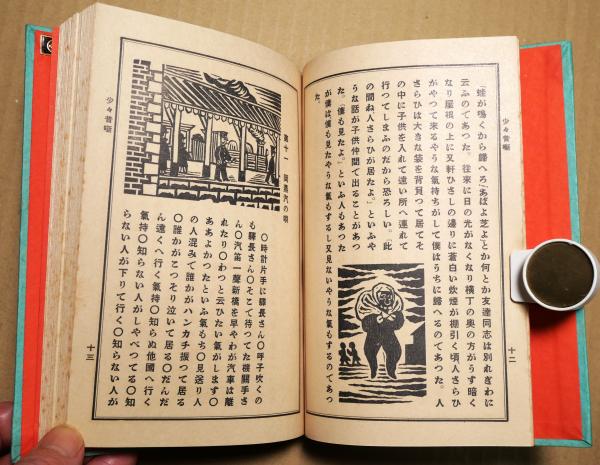 少々昔噺
「蛙が鳴くから歸へろ!あばよ芝よ」とか何とか友達同志は別れぎわに
云ふのであつた。往來に日の光がなくなり横丁の奥の方がうす暗く
なり屋根の上に又軒ひさしの邊りに蒼白い炊煙が棚引く頃人さらひ
がやつて來るやうな氣持ちがして僕はうちに歸へるのであつた。人
さらひは大きな袋を背負つて居てそ
の中に子供を入れて遠い所へ連れて
行つてしまふのだから恐ろしい。「此
の間ね人さらひが居たよ。」といふや
うな話が子供仲間で出ることがあつ
た。「僕も見たよ。」といふ人もあつた
が僕は僕も見たやうな氣もするし又見ないやうな氣もするのであつ
た。
十二
第十一 岡蒸汽の唄
〇時計片手に驛長さん〇呼子吹くの
も驛長さん〇そこで待つてた機關手さ
ん〇汽笛一聲新橋を早やわが汽車は離
れたり〇わつと云ひたい氣がします〇
ああよかつたといふ氣もち〇見送り人
の人混みで誰かがハンカチ振つて居る
〇誰かがこつそり泣いて居る〇だんだ
ん遠くへ行く氣持〇知らぬ他國へ行く
氣持〇知らない人がしやべつてる〇知
らない人が下りて行く〇知らない人が
少々昔噺
十三